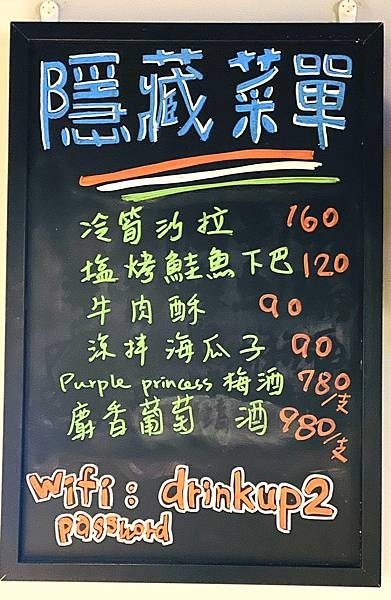 隱藏菜單
冷筍沙拉 160
塩烤鮭魚下巴 120
牛肉酥 90
涼拌海瓜子 90
Purple princess 梅酒 780/支
麝香葡萄 酒 980/支
wifi: drinkup2
password